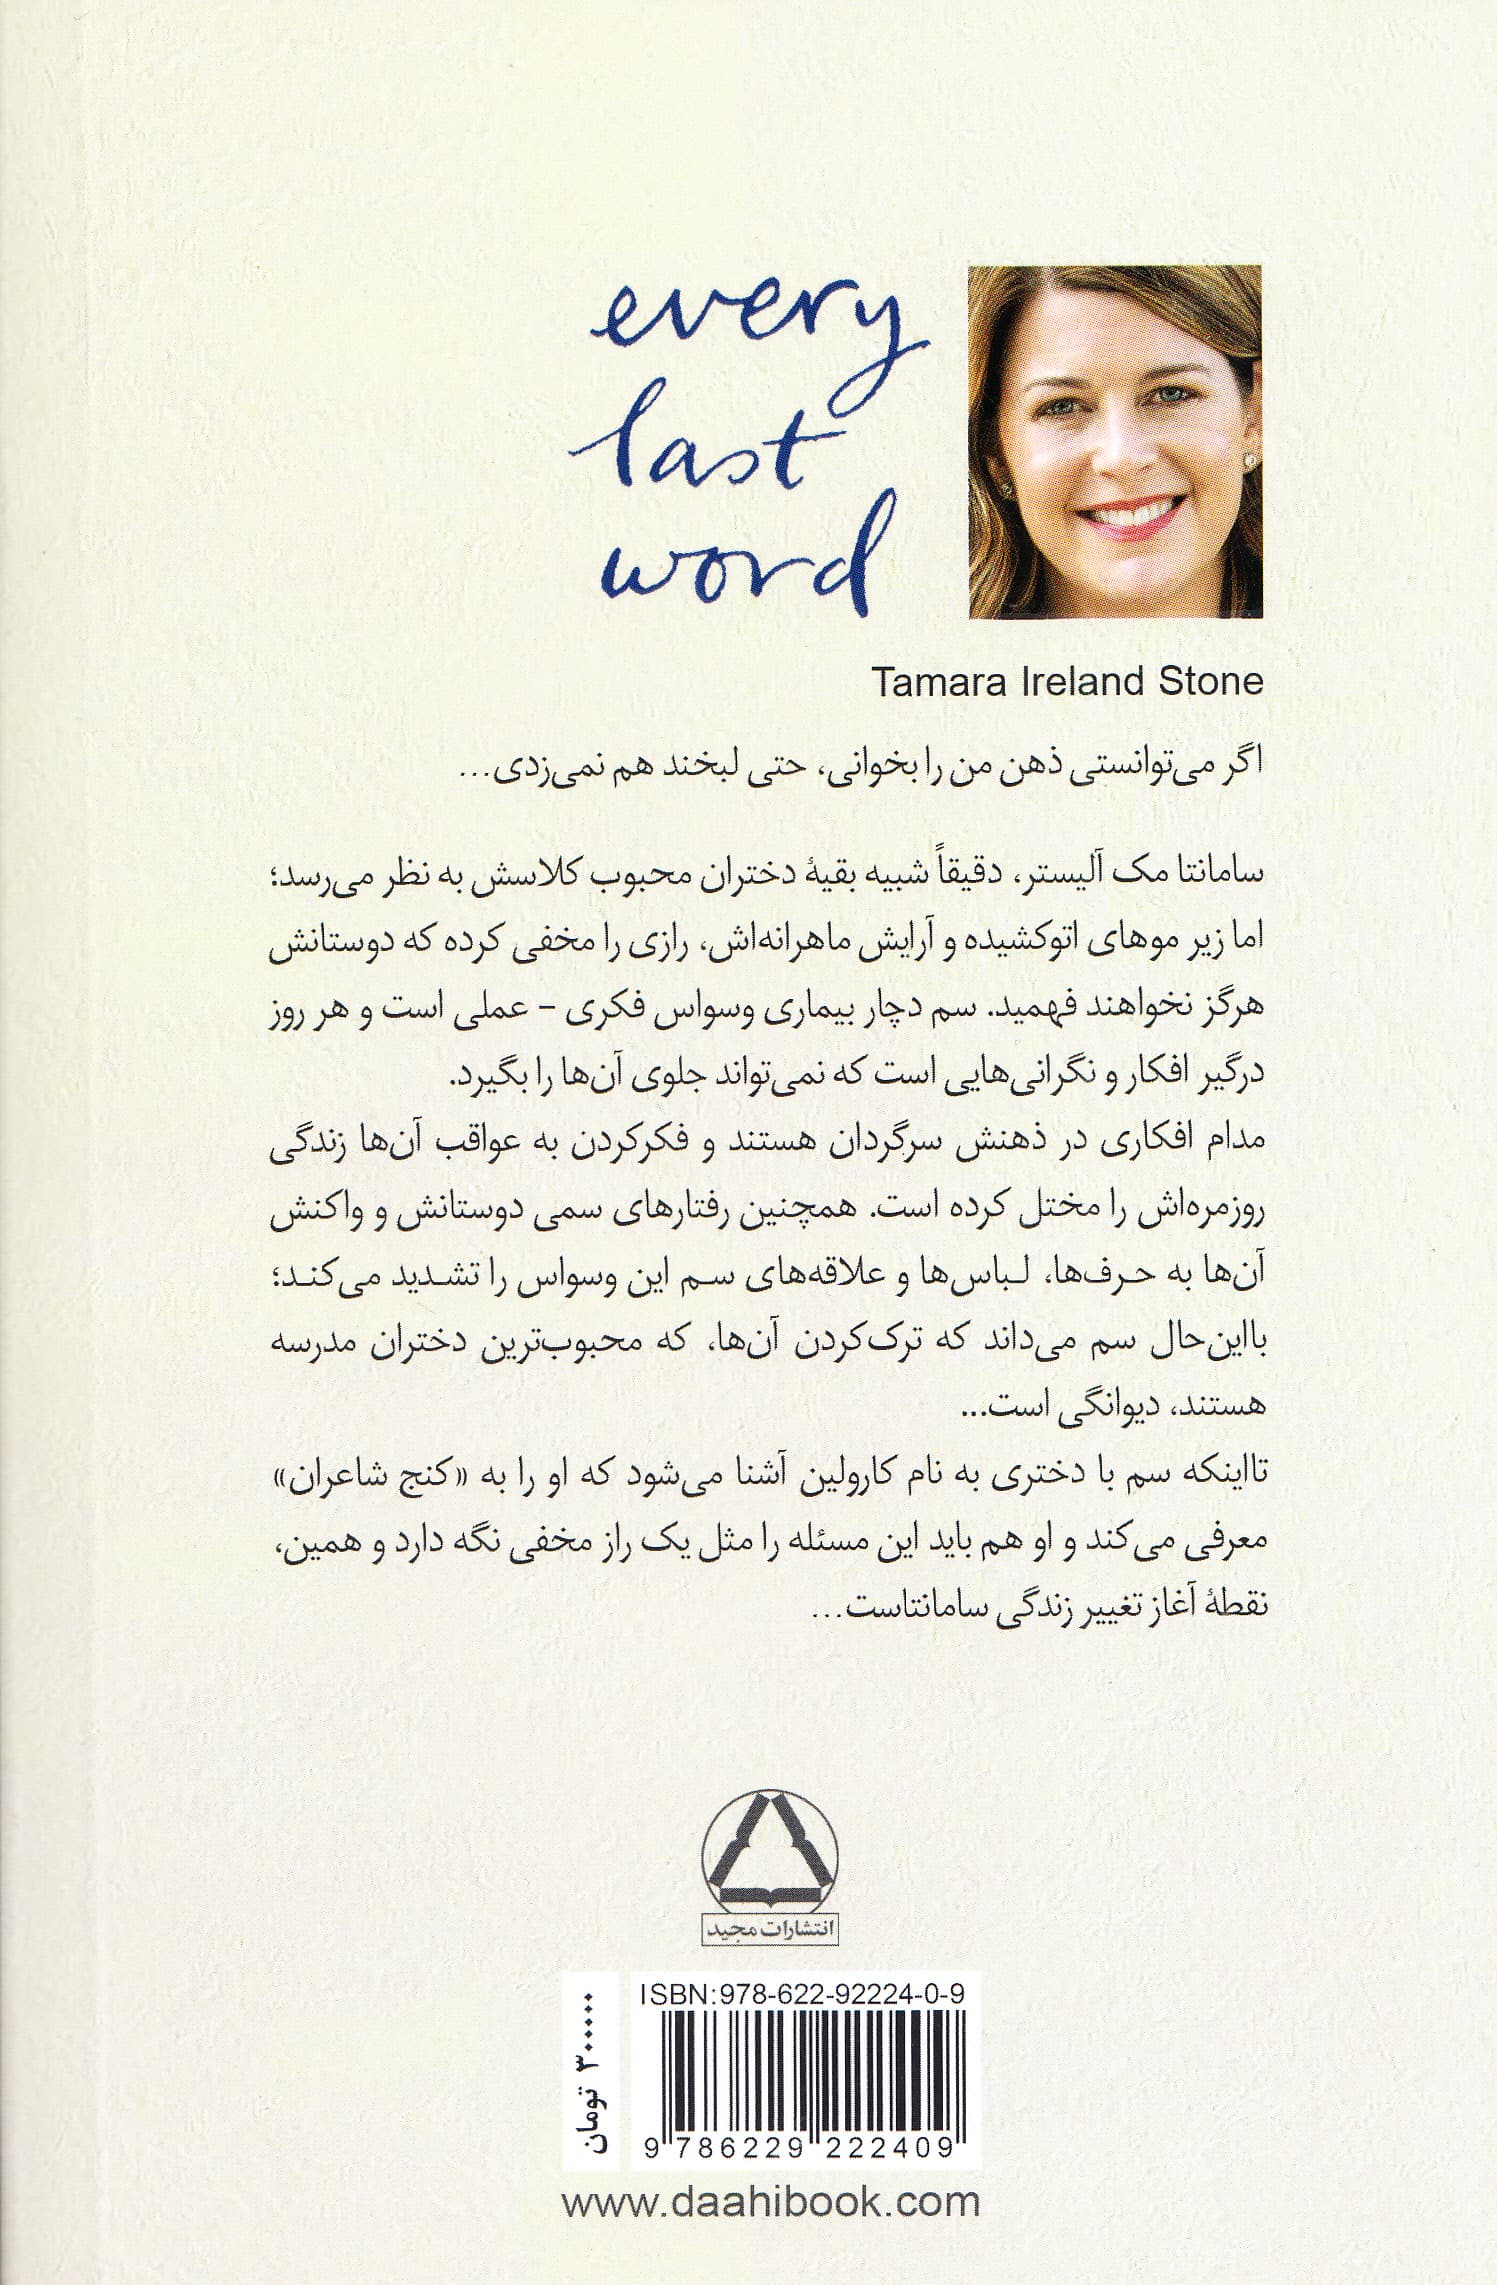 every
last
word
Tamara Ireland Stone
اگر می‌توانستی ذهن من را بخوانی، حتی لبخند هم نمی‌زدی...
سامانتا مک آلیستر، دقیقاً شبیه بقیهٔ دختران محبوب کلاسش به نظر می‌رسد؛
اما زیر موهای اتوکشیده و آرایش ماهرانه‌اش، رازی را مخفی کرده که دوستانش
هرگز نخواهند فهمید. سم دچار بیماری وسواس فکری – عملی است و هر روز
درگیر افکار و نگرانی‌هایی است که نمی‌تواند جلوی آن‌ها را بگیرد.
مدام افکاری در ذهنش سرگردان هستند و فکرکردن به عواقب آن‌ها زندگی
روزمره‌اش را مختل کرده است. همچنین رفتارهای سمی دوستانش و واکنش
آن‌ها به حرف‌ها، لباس‌ها و علاقه‌های سم این وسواس را تشدید می‌کند؛
بااین‌حال سم می‌داند که ترک‌کردن آن‌ها، که محبوب‌ترین دختران مدرسه
هستند، دیوانگی است...
تااینکه سم با دختری به نام کارولین آشنا می‌شود که او را به «کنج شاعران»
معرفی می‌کند و او هم باید این مسئله را مثل یک راز مخفی نگه دارد و همین،
نقطهٔ آغاز تغییر زندگی سامانتاست...
انتشارات مجید
ISBN:978-622-92224-0-9
۳۰۰۰۰۰ تومان
9 786229 222409
www.daahibook.com